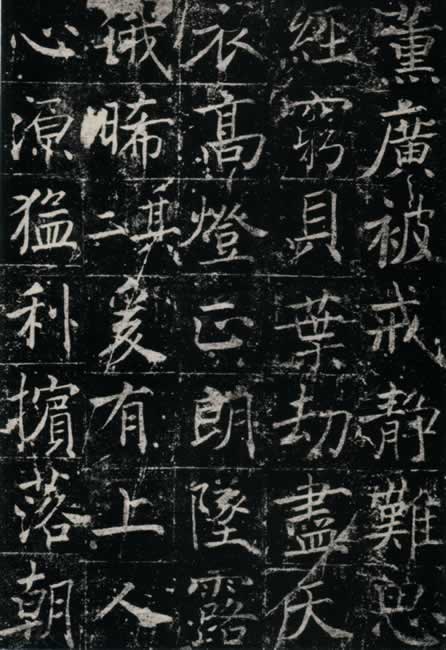 薰廣被戒静難思
經窮貝葉劫盡天
衣高燈正朗墜露
俄晞其二爰有上人
心源猛利擯落朝